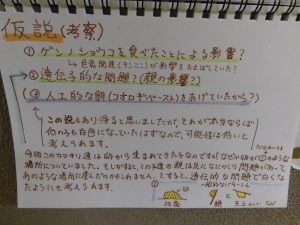 仮説(考察)
① ゲンノショウコを食べたことによる影響?
↳ 色素関連(タンニン)が影響をおよぼしていた?
② 遺伝子的な問題?(親の影響?)
③ 人工的な餌(コオロギ・ ースト)をあげていたから?
この説もあり得ると思いましたが、これが本当ならば
他のものも白色になっていたはずなので、可能性は低いと
考えられます。
今回このカマキリ達は卵から生まれてきた子なのですが、なぜか卵が①のような
場所についていました。もしかすると、この子達の親は足になにかしら問題があって
あのような場所に産んだのかもしれません。とすると、遺伝的な問題で白くなっ
たようにも考えられます。
①
地面
一般的なパターン
枝
天井 など